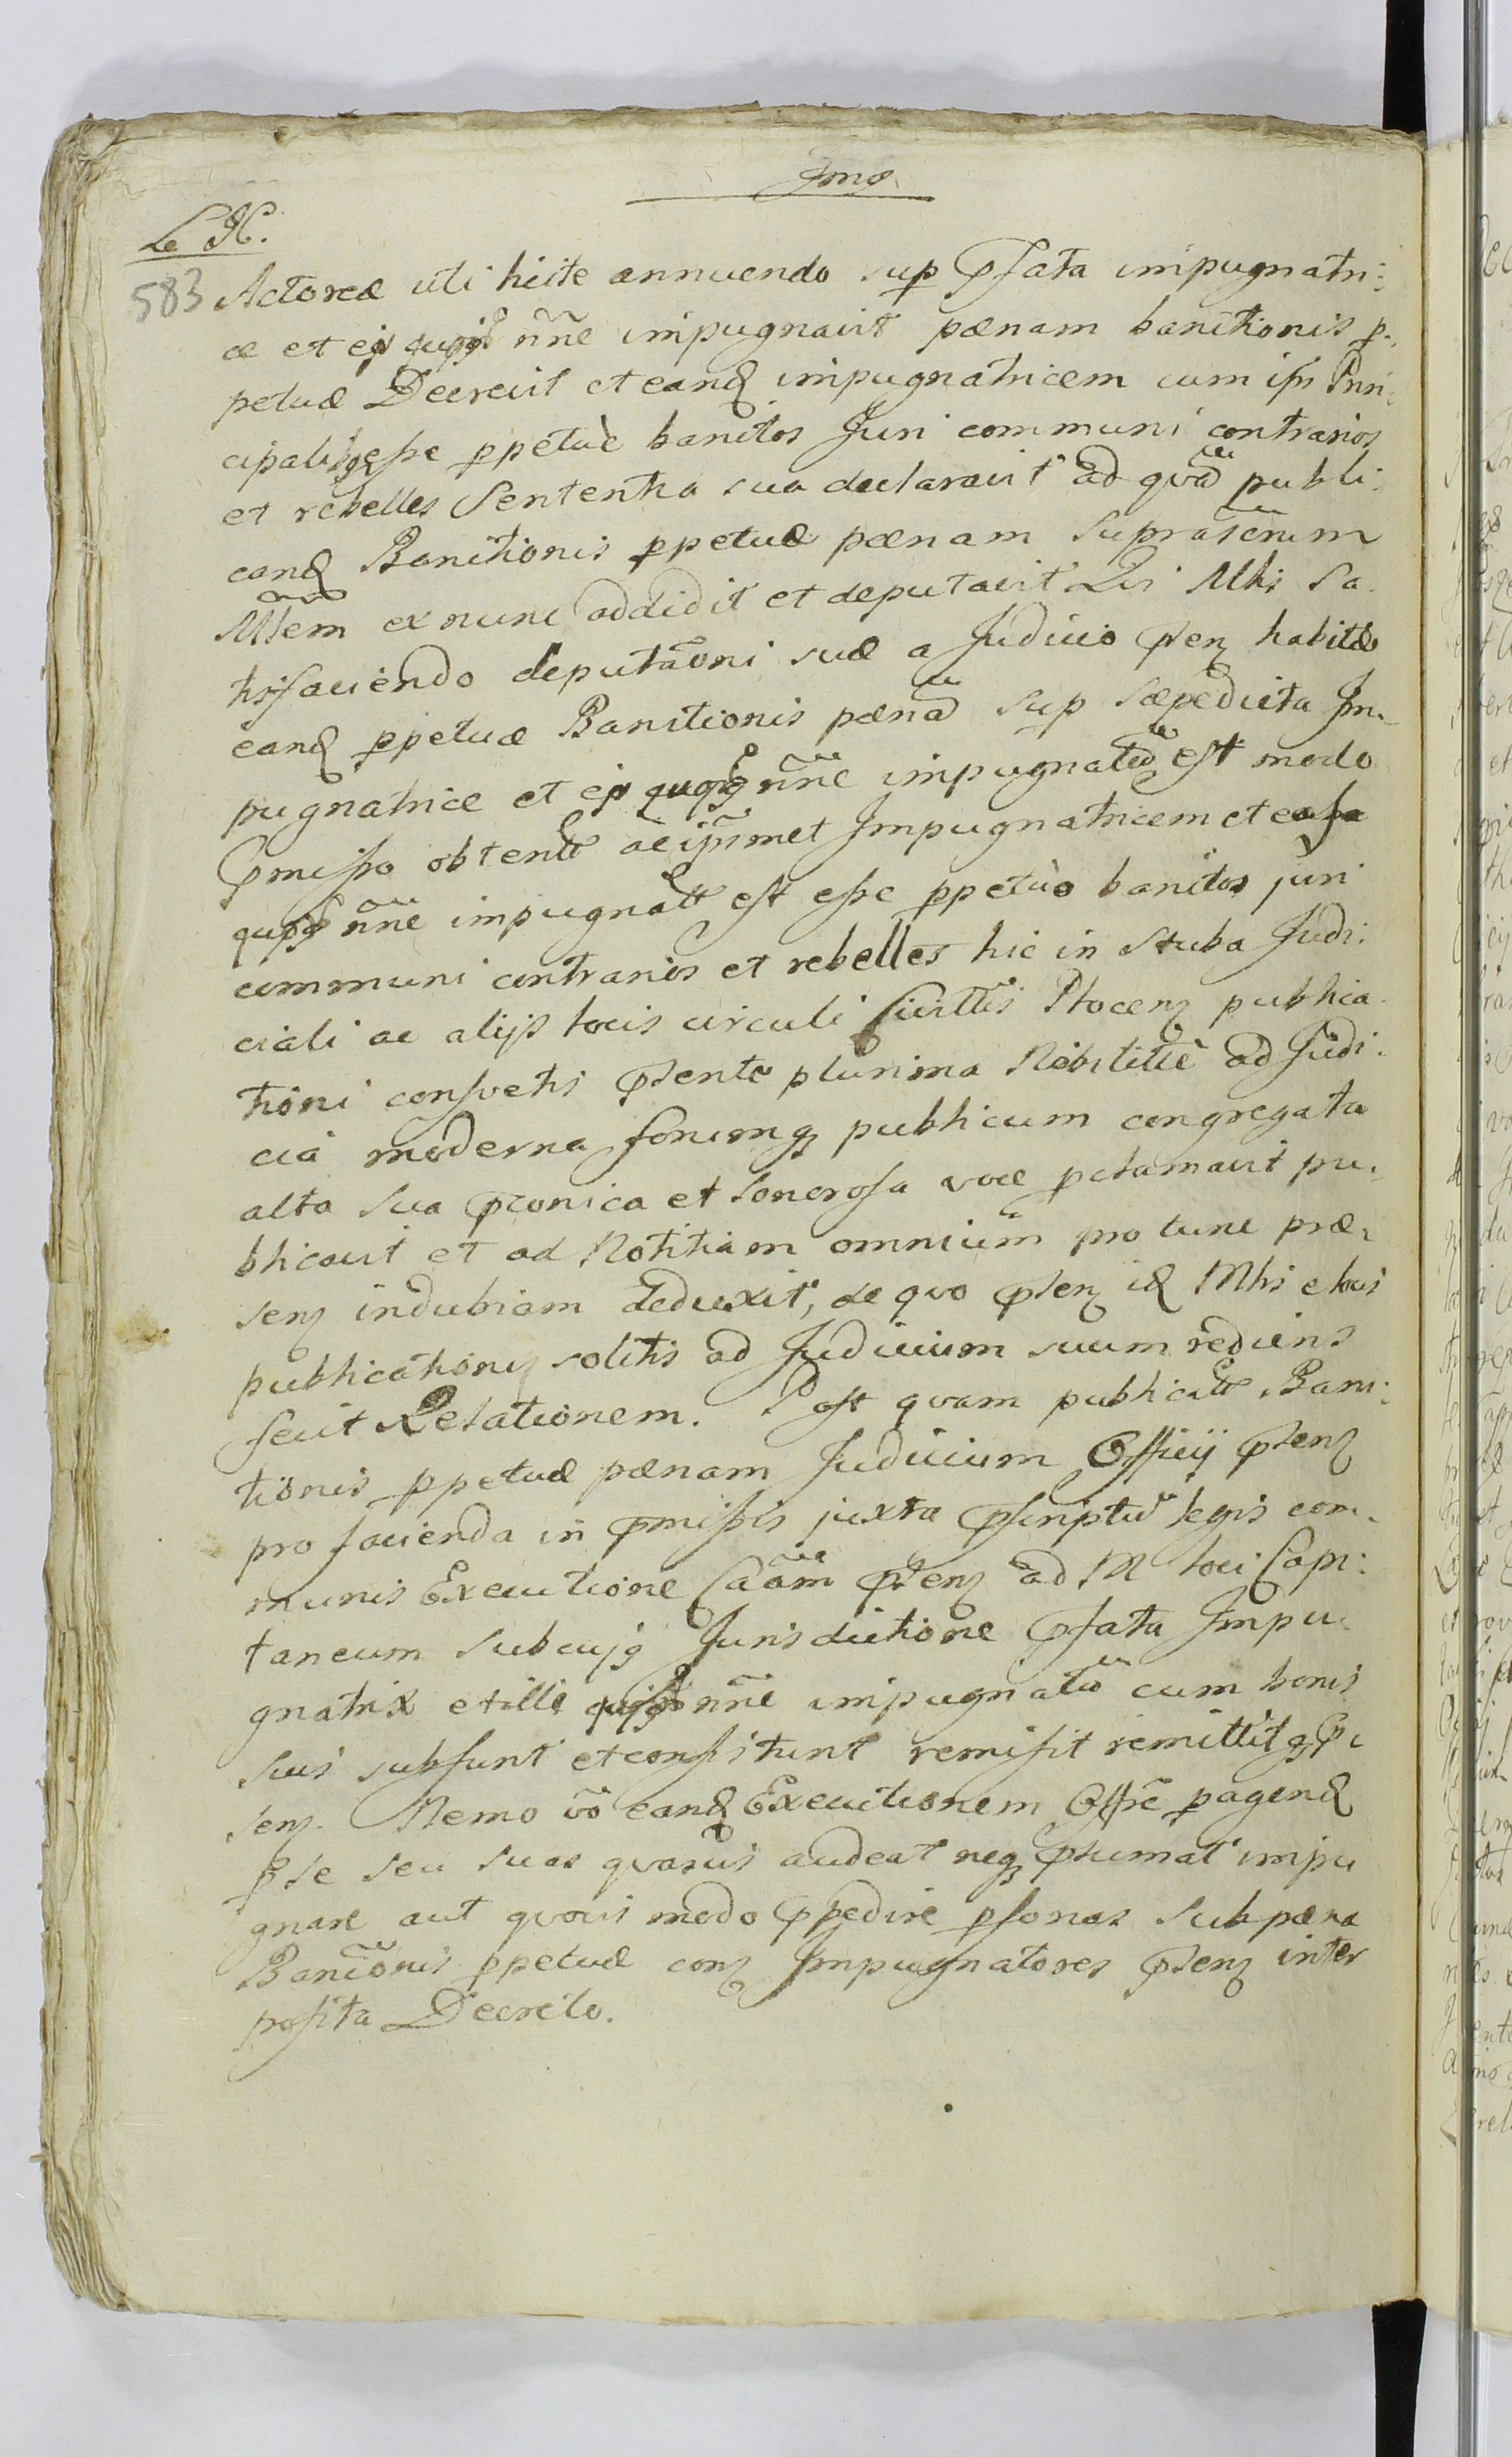 Imo
Le H.
583 Actoreæ uti licite annuendo sup pfata impugnatri:
ce et ejs quojs nne impugnavit pænam banitionis p.
petuæ Decrevit et eand impugnatricem cum Prin:
cipalibg esse ppetuè banitos Juri communi contrarios
et rebelles Sententia sua declaravit ad qvã publi:
cand Banitionis ppetuæ pænam suprascrium
Mlem ex nunc addidit et deputavit Qui Mlis sa.
tisfaciendo deputaoni suæ a Judicio psenz habitæ
eand ppetuæ Banitionis pænã sup sæpedicta Im.
pugnatrice et ejs quojg nne impugnatũ est modo
pmisso obtentt ac ipsmet Impugnatricem et eos
quojg nne impugnatt est esse ppetuò banitos juri
communi contrarios et rebelles hic in stuba Judi:
ciali ac alijs locis circuli Civittis Plocenz publica.
tioni consvetis psente plurima Nobilitte ad Judi:
cia moderna forumqz publicum congregata
alta sua pconica et sonorosa voce pclamavit pu.
blicavit et ad Notitiam omnium pro tunc præ.
senz indubiam deduxit, de qvo psenz id Mlis e locis
publicationis solitis ad Judicium suum rediens
fecit Relationem. Post qvam publicatt Bani:
tionis ppetuæ pænam Judicium Officij psenz
pro facienda in pmissis juxta pscriptũ legis com.
munis Executione Caãm psenz ad M loci Capi:
taneum sub cujg Jurisdictione pfata Impu.
gnatrix et illi quojg nne impugnatũ cum bonis
suis subsunt et consistunt remisit remittitqz p.
senz. Nemo vo eand Executionem Offse pagend
p se seu suas qvasvis audeat neqz psumat impu
gnare aut qvovis modo ppedire psonas sub pæna
Banionis ppetuæ conz Impugnatores psenz inter
posita Decreto.